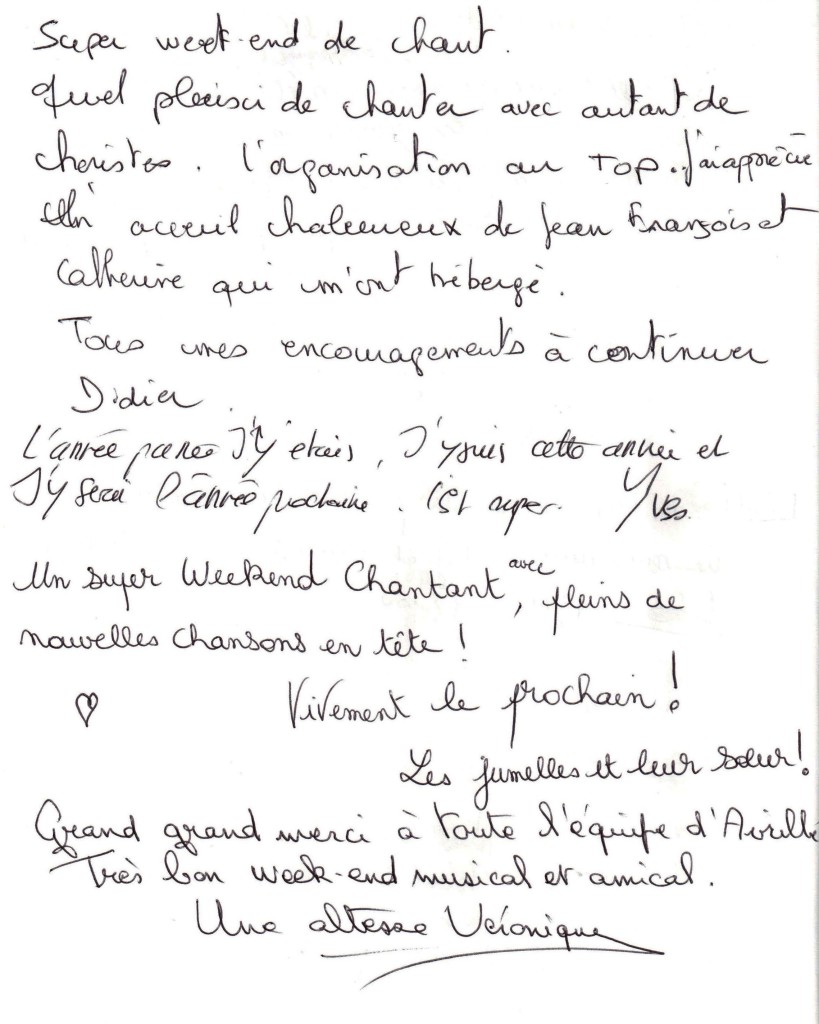 Super week-end de chant.
Quel plaisir de chanter avec autant de
choristes. l'organisation au TOP. J'ai apprécié
Un accueil chaleureux de Jean François et
Catherine qui m'ont hébergé.
Tous mes encouragements à continuer
Didier.
L'année passée J'Y étais, J'y suis cette année et
J'Y serai l'année prochaine. C'est super. Yves.
Un super Weekend Chantant, avec pleins de
nouvelles chansons en tête !
♡ Vivement le prochain !
Les jumelles et leur sœur !
Grand grand merci à toute l'équipe d'Avrillé
Très bon week-end musical et amical.
Une altesse Véronique